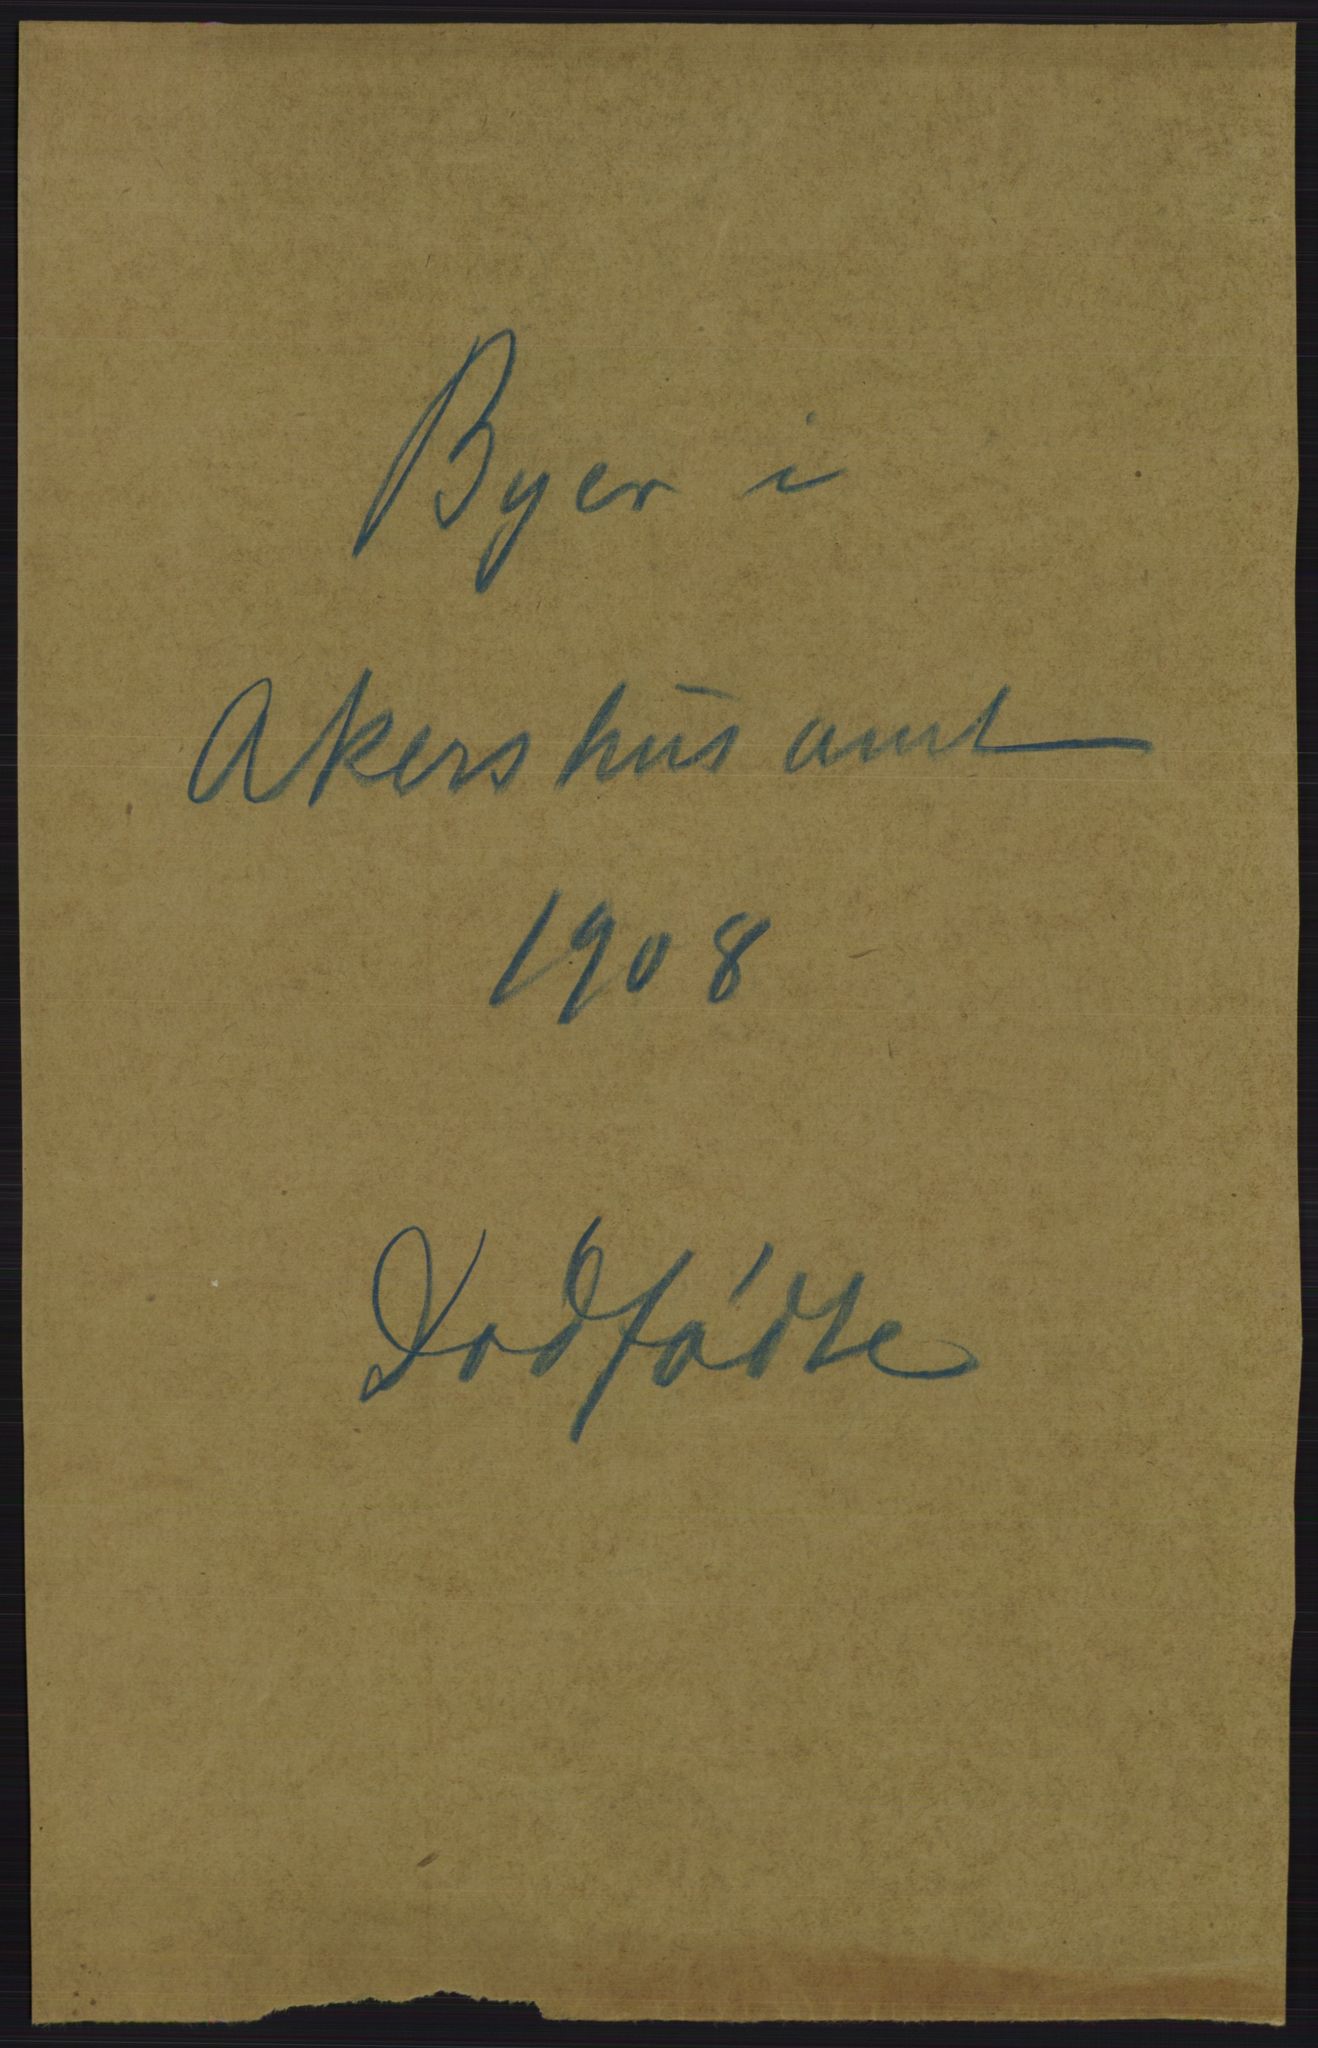 Byer i
Akershus amt
1908
Dodfødte